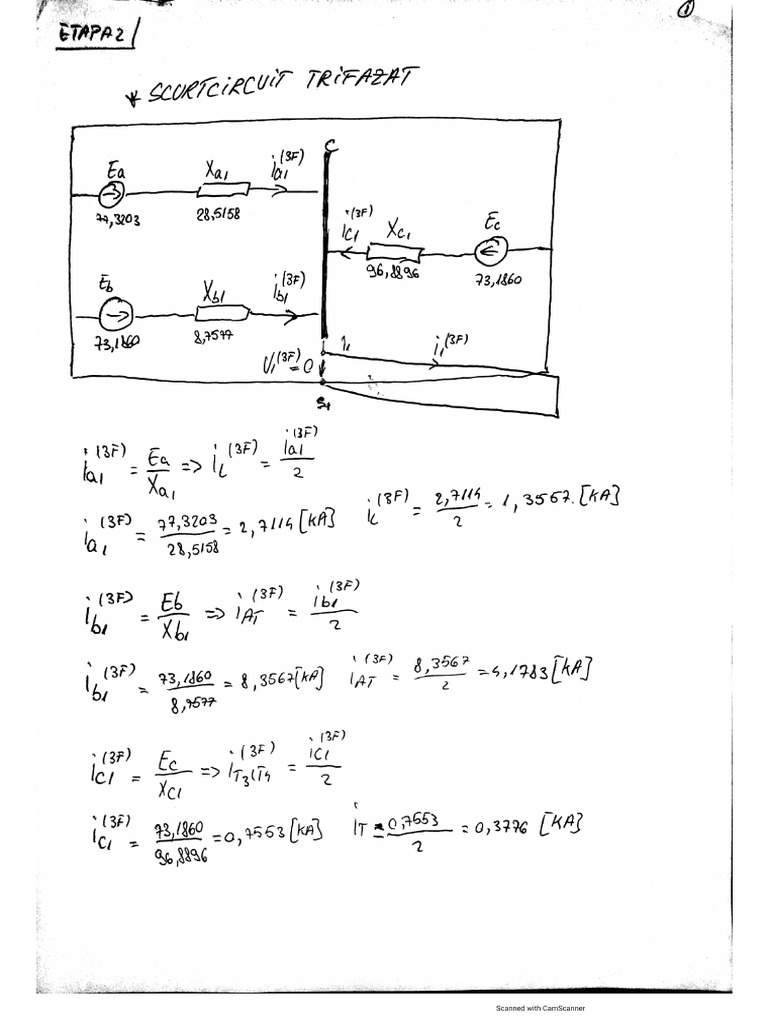 1
ETAPA 2
* SCURTCIRCUIT TRIFAZAT
C
Ea Xa1 ia1(3F)
77,3203 28,5158
ic1(3F) Xc1 Ec
96,8896 73,1860
Eb Xb1 ib1(3F)
73,1860 8,7577
U1(3F)=0 i1(3F)
S1
ia1(3F) = Ea/Xa1 => iL(3F) = ia1(3F)/2
ia1(3F) = 77,3203/28,5158 = 2,7114 [KA] iL(3F) = 2,7114/2 = 1,3567. [KA]
ib1(3F) = Eb/Xb1 => iAT(3F) = ib1(3F)/2
ib1(3F) = 73,1860/8,7577 = 8,3567 [KA] iAT(3F) = 8,3567/2 = 4,1783 [KA]
ic1(3F) = Ec/XC1 => iT3,T4(3F) = ic1(3F)/2
ic1(3F) = 73,1860/96,8896 = 0,7553 [KA] iT = 0,7553/2 = 0,3776 [KA]
Scanned with CamScanner